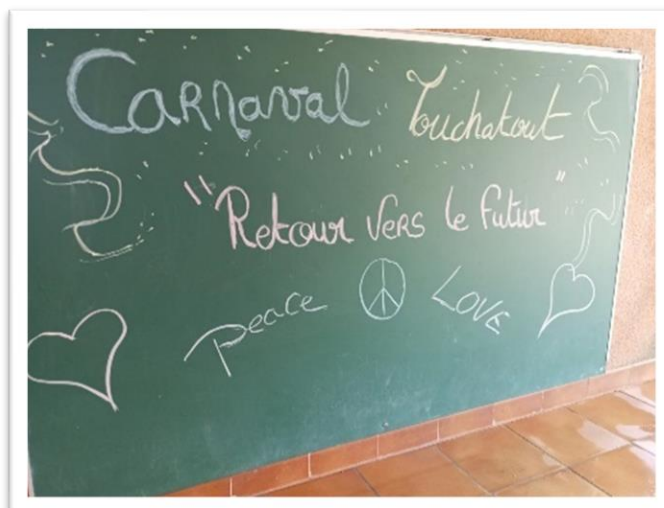 Carnaval Touchatout
"Retour vers le futur"
Peace LOVE